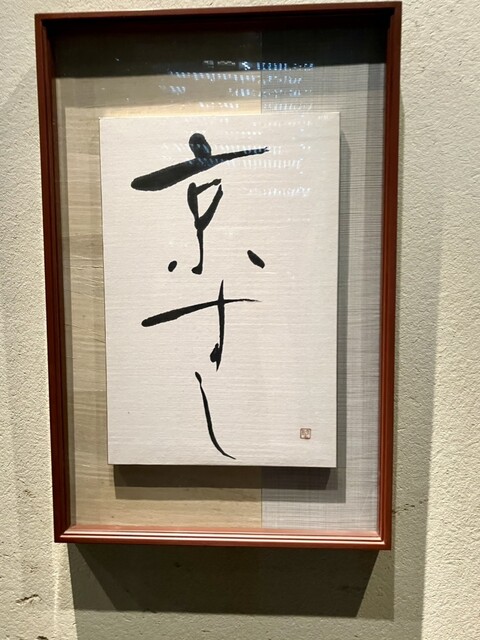 京すし